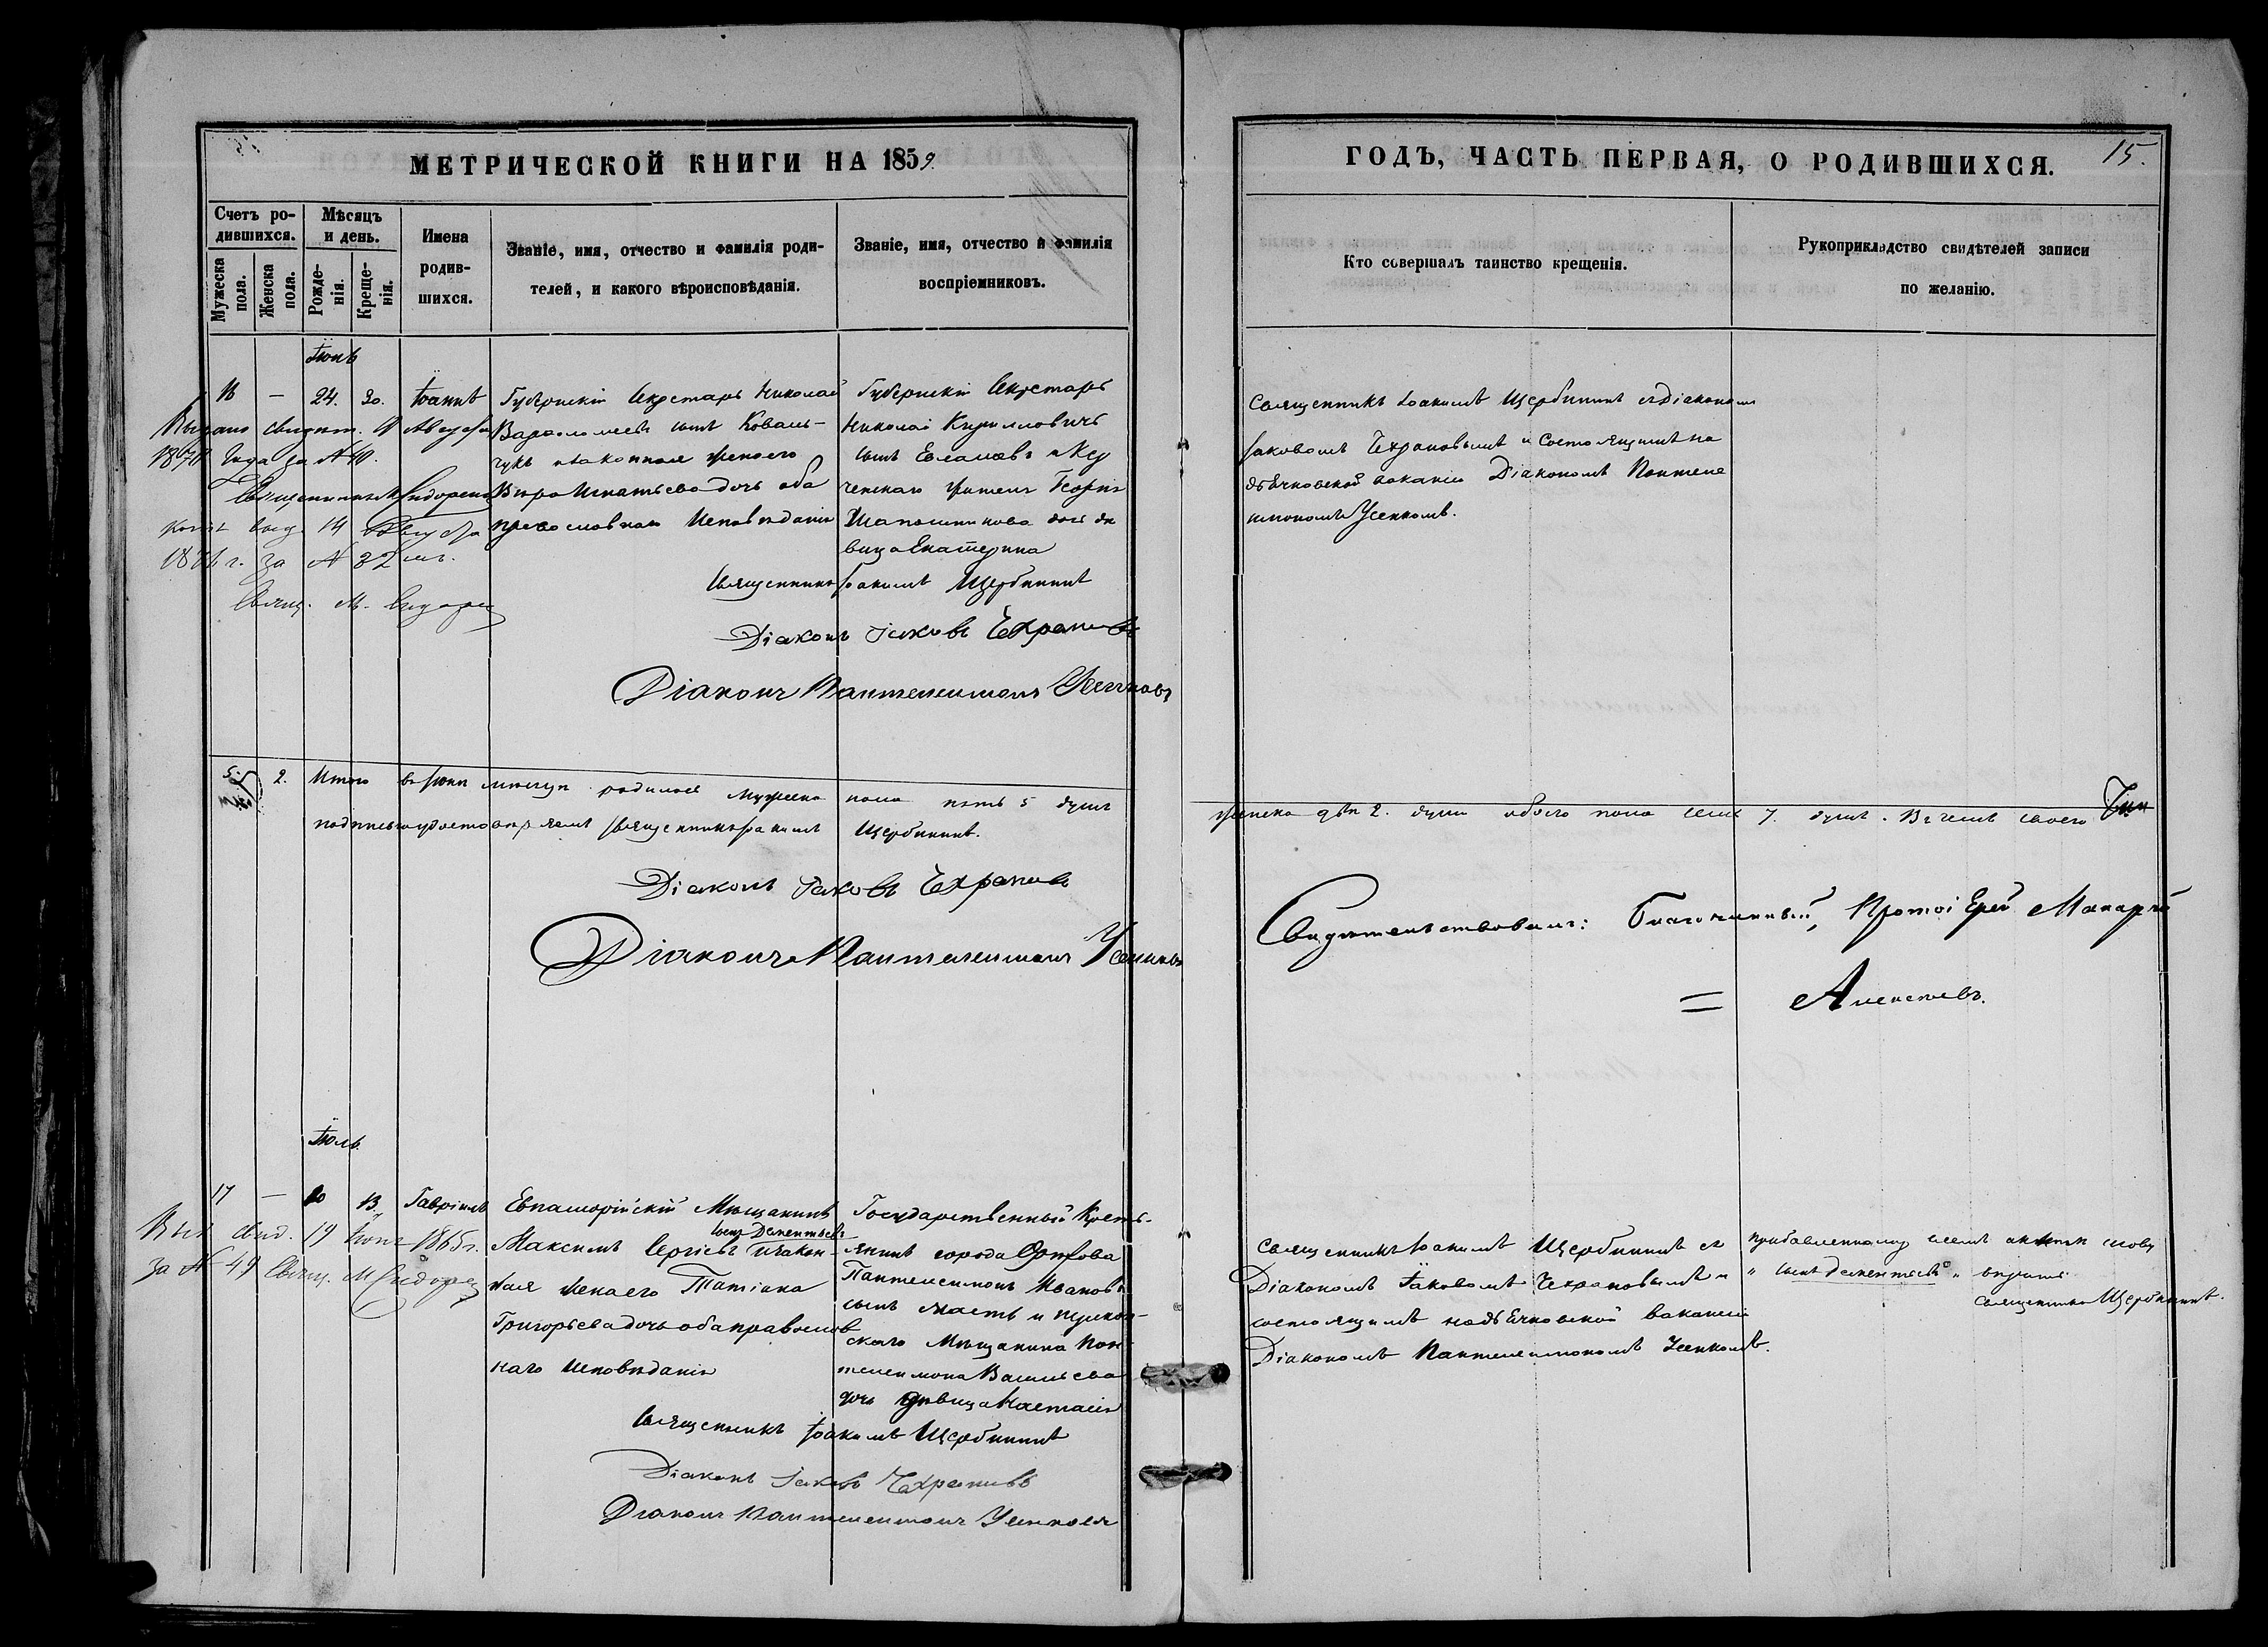 МЕТРИЧЕСКОЙ КНИГИ НА 1859.
Счетъ ро-
дившихся.
Мѣсяцъ
и день.
Мужеска
пола.
Женска
пола.
Рожде-
нія.
Креще-
нія.
Имена
родив-
шихся.
Званіе, имя, отчество и фамилія роди-
телей, и какого вѣроисповѣданія.
Званіе, имя, отчество и фамилія
воспріемниковъ.
Іюнь
16 — 24. 30. Іоаннъ
Губернскій Секретарь Николай
Варѳоломеевъ сынъ Коваль-
чукъ законная жена его
Игнатьева дочь оба
православнаго исповѣданія
Губернскій Секретарь
Николай Кирилловичъ
сынъ
учителя Георгія
Шапошникова дочь дѣ
вица Екатерина
Выдано свидѣт. Августа
года за № 40.
Священникъ Сидоренко
14 Августа
г. за № 82
Свящ. М. Сидоренко
Священникъ Іоакимъ Щербининъ
Діаконъ Іаковъ Чехрановъ
Діаконъ Пантелеимонъ Усенковъ
5. 2. Итого въ Іюнѣ мѣсяцѣ родилось мужеска пола пять 5 душъ
подписью удостовѣряемъ Священникъ Іоакимъ Щербининъ.
Діаконъ Іаковъ Чехрановъ
Діаконъ Пантелеимонъ Усенковъ
Іюль
17 — 10 13 Гавріилъ
Евпаторійскій Мѣщанинъ
сынъ Дементьевъ
Максимъ Сергіевъ и закон-
ная жена его Татіана
Григорьева дочь оба православ
наго исповѣданія
Государственный Кресть-
янинъ города Орѣхова
Пантелеимонъ Ивановъ
сынъ
скаго Мѣщанина Пан-
телеимона Васильева
дочь дѣвица Настасія
свид. 19 Іюня 1865 г.
за № 49 Свящ. М Сидоренко
Священникъ Іоакимъ Щербининъ
Діаконъ Іаковъ Чехрановъ
Діаконъ Пантелеимонъ Усенковъ
ГОДЪ, ЧАСТЬ ПЕРВАЯ, О РОДИВШИХСЯ.
15.
Кто совершалъ таинство крещенія.
Рукоприкладство свидѣтелей записи
по желанію.
Священникъ Іоакимъ Щербининъ съ Діакономъ
Іаковомъ Чехрановымъ и состоящимъ на
дьячковской вакансіи Діакономъ Пантеле
имономъ Усенкомъ.
женска двѣ 2. души обоего пола семь 7. душъ. Въ чемъ своего
Свидѣтельствовалъ: Благочинный, Протоіерей Макарій
= Алексѣевъ.
Священникъ Іоакимъ Щербининъ съ
Діакономъ Іаковомъ Чехрановымъ и
состоящимъ на дьячковской вакансіи
Діакономъ Пантелеимономъ Усенкомъ.
„ сынъ Дементьевъ „ вѣрить
священникъ Щербининъ.